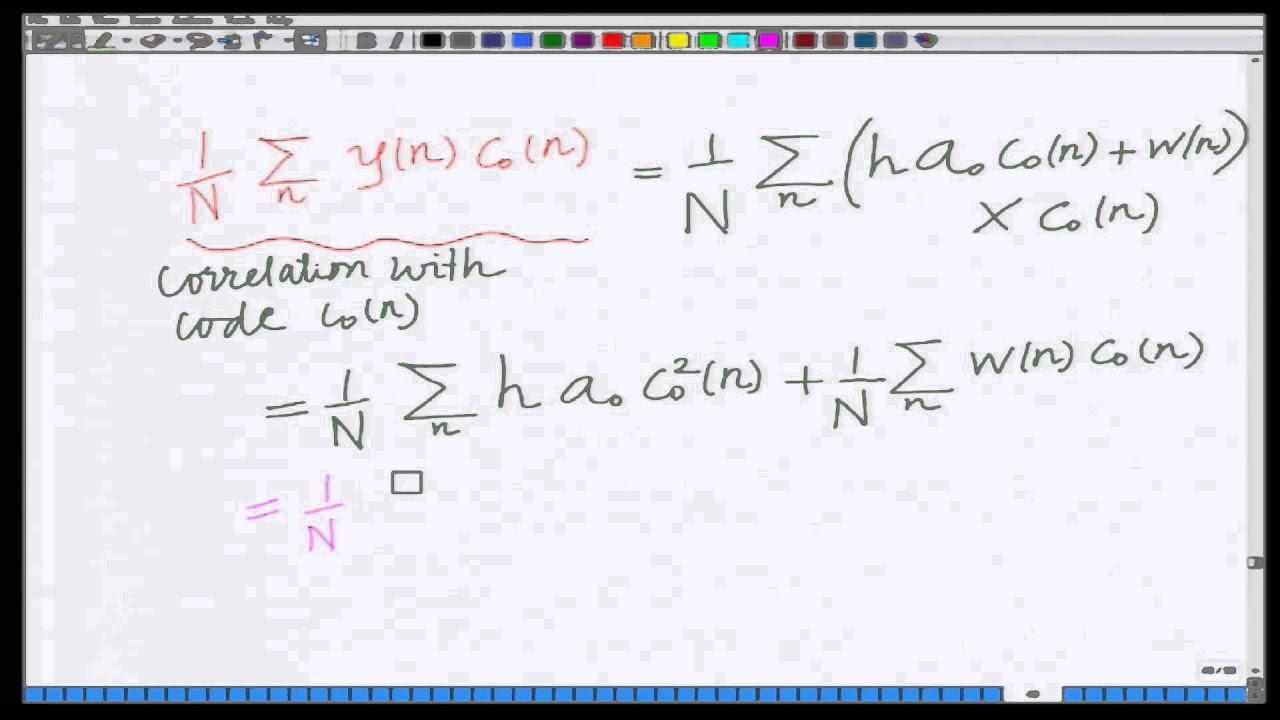 1/N Σ_n y(n) c₀(n) = 1/N Σ_n (h a₀ c₀(n) + w(n))
× c₀(n)
correlation with
code c₀(n)
= 1/N Σ_n h a₀ c₀²(n) + 1/N Σ_n w(n) c₀(n)
= 1/N